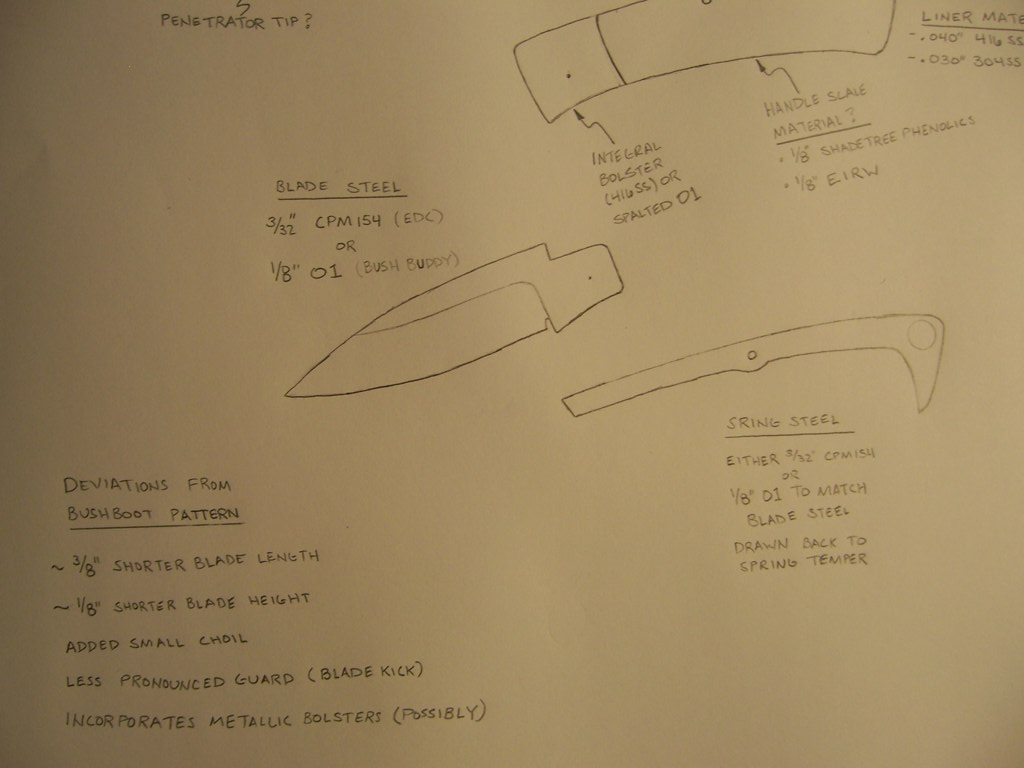 PENETRATOR TIP?
LINER MATE
- .040" 416 SS
- .030" 304SS
HANDLE SCALE
MATERIAL?
• 1/8" SHADETREE PHENOLICS
• 1/8" EIRW
INTEGRAL
BOLSTER
(416SS) OR
SPALTED O1
BLADE STEEL
3/32" CPM154 (EDC)
OR
1/8" O1 (BUSH BUDDY)
SRING STEEL
EITHER 3/32" CPM154
OR
1/8" O1 TO MATCH
BLADE STEEL
DRAWN BACK TO
SPRING TEMPER
DEVIATIONS FROM
BUSHBOOT PATTERN
~ 3/8" SHORTER BLADE LENGTH
~ 1/8" SHORTER BLADE HEIGHT
ADDED SMALL CHOIL
LESS PRONOUNCED GUARD (BLADE KICK)
INCORPORATES METALLIC BOLSTERS (POSSIBLY)